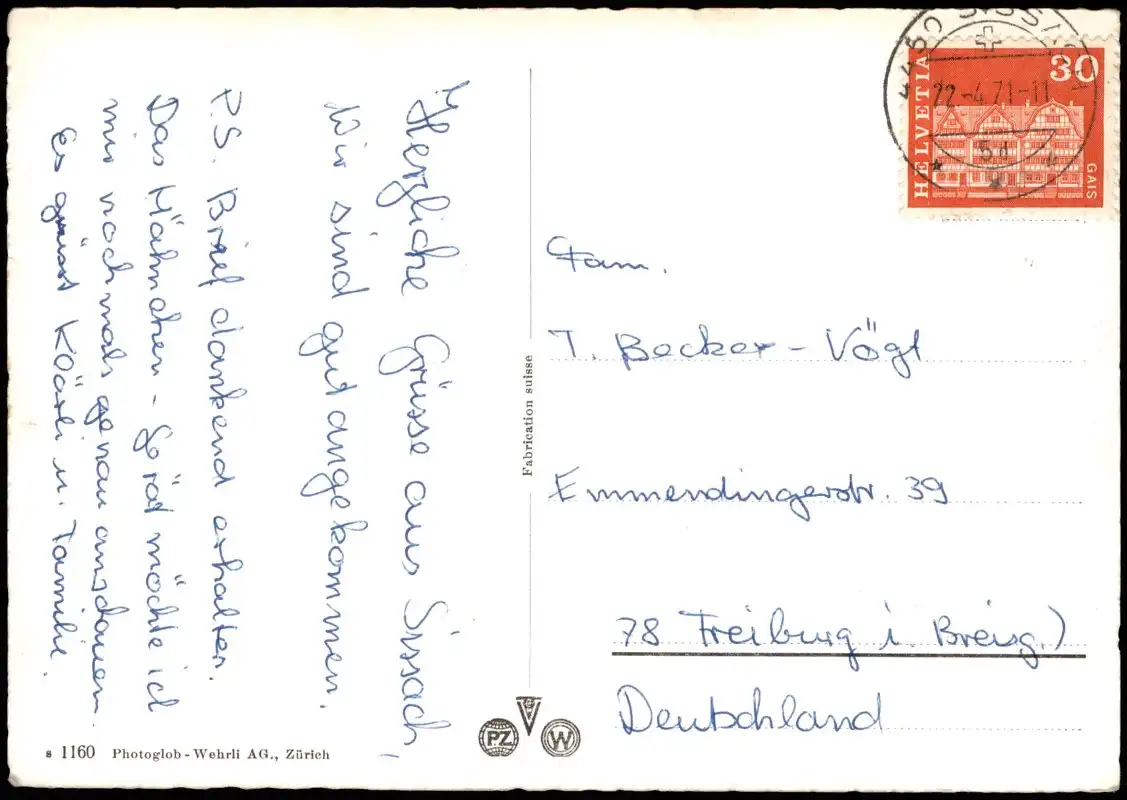 Herzliche Grüsse aus Sissach,
Wir sind gut angekommen.
P.S. Brief dankend erhalten.
Das Mähmchen-Gerät möchte ich
mir nochmals genau anschauen.
Es grüsst Klärli u. Familie.
s 1160 Photoglob-Wehrli AG., Zürich
Fabrication suisse
PZ
W
4450 SISSACH
22.-4.71-11
HELVETIA
30
GAIS
Fam.
T. Becker-Vögt
Emmendingerstr. 39
78 Freiburg i. Breisg.)
Deutschland